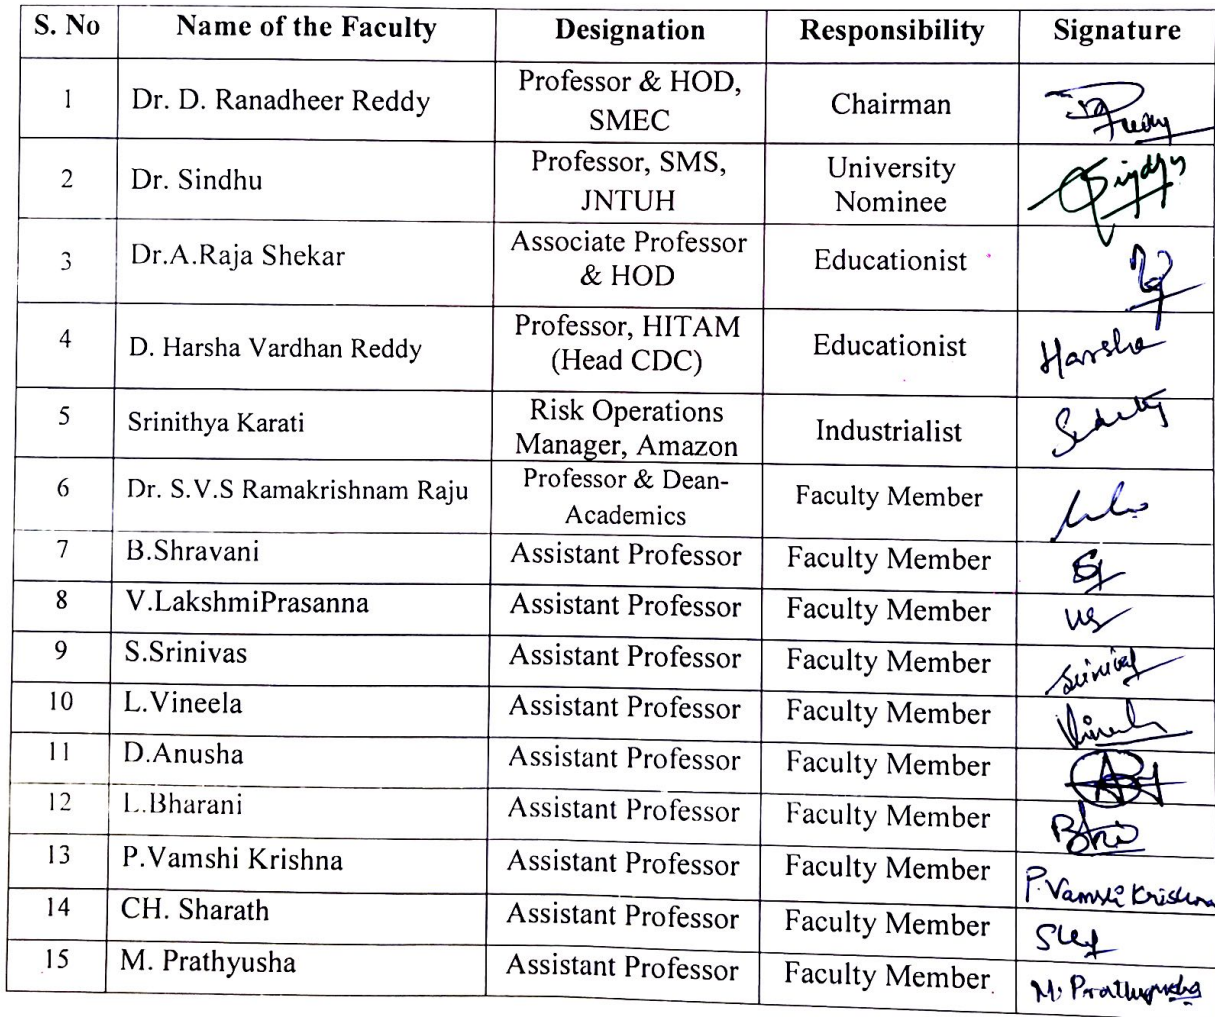 S. No Name of the Faculty Designation Responsibility Signature
1 Dr. D. Ranadheer Reddy Professor & HOD, SMEC Chairman
2 Dr. Sindhu Professor, SMS, JNTUH University Nominee
3 Dr.A.Raja Shekar Associate Professor & HOD Educationist
4 D. Harsha Vardhan Reddy Professor, HITAM (Head CDC) Educationist Harsha
5 Srinithya Karati Risk Operations Manager, Amazon Industrialist
6 Dr. S.V.S Ramakrishnam Raju Professor & Dean-Academics Faculty Member
7 B.Shravani Assistant Professor Faculty Member
8 V.LakshmiPrasanna Assistant Professor Faculty Member
9 S.Srinivas Assistant Professor Faculty Member Srinivas
10 L.Vineela Assistant Professor Faculty Member
11 D.Anusha Assistant Professor Faculty Member
12 L.Bharani Assistant Professor Faculty Member
13 P.Vamshi Krishna Assistant Professor Faculty Member P.Vamshi Krishna
14 CH. Sharath Assistant Professor Faculty Member
15 M. Prathyusha Assistant Professor Faculty Member M. Prathyusha